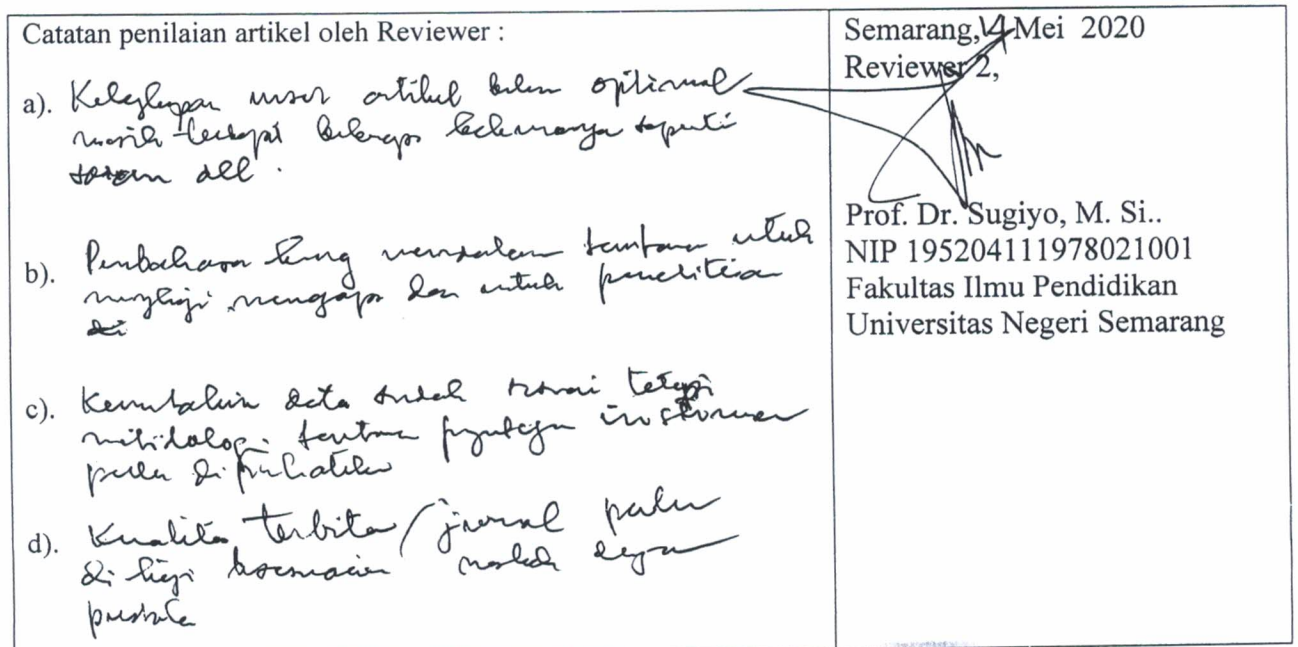 Catatan penilaian artikel oleh Reviewer :
a). Kelengkapan unsur artikel belum optimal
masih terdapat beberapa seperti
saran dll.
b). Pembahasan kurang mendalam terutama untuk
mengkaji mengapa dan untuk penelitian
di
c). Kemutakhiran data sudah sesuai tetapi
metodologi terutama instrumen
perlu diperhatikan
d). Kualitas terbitan / jurnal perlu
dikaji kesesuaian naskah dengan
Semarang, 14 Mei 2020
Reviewer 2,
Prof. Dr. Sugiyo, M. Si..
NIP 195204111978021001
Fakultas Ilmu Pendidikan
Universitas Negeri Semarang